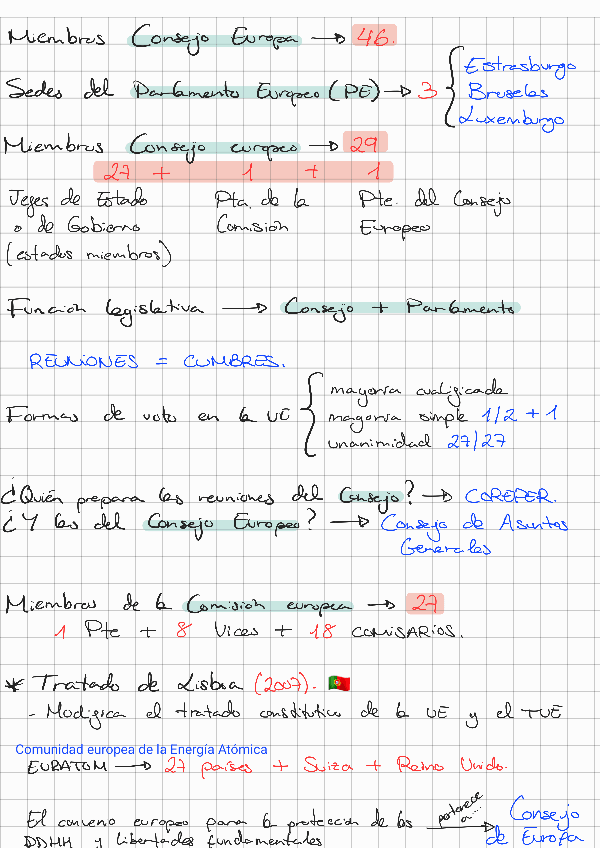 Miembros Consejo Europa → 46.
Sedes del Parlamento Europeo (PE) → 3 { Estrasburgo
Bruselas
Luxemburgo
Miembros Consejo europeo → 29
27 + 1 + 1
Jefes de Estado Pta. de la Pte. del Consejo
o de Gobierno Comisión Europeo
(estados miembros)
Función legislativa → Consejo + Parlamento
REUNIONES = CUMBRES.
Formas de voto en la UE { mayoría cualificada
mayoría simple 1/2 + 1
unanimidad 27/27
¿Quién prepara las reuniones del Consejo? → COREPER.
¿Y las del Consejo Europeo? → Consejo de Asuntos
Generales
Miembros de la Comisión europea → 27
1 Pte + 8 Vices + 18 COMISARIOS.
* Tratado de Lisboa (2007). 🇵🇹
- Modifica el tratado constitutivo de la UE y el TUE
Comunidad europea de la Energía Atómica
EURATOM → 27 países + Suiza + Reino Unido.
El convenio europeo para la protección de los pertenece a... → Consejo
DDHH y libertades fundamentales de Europa